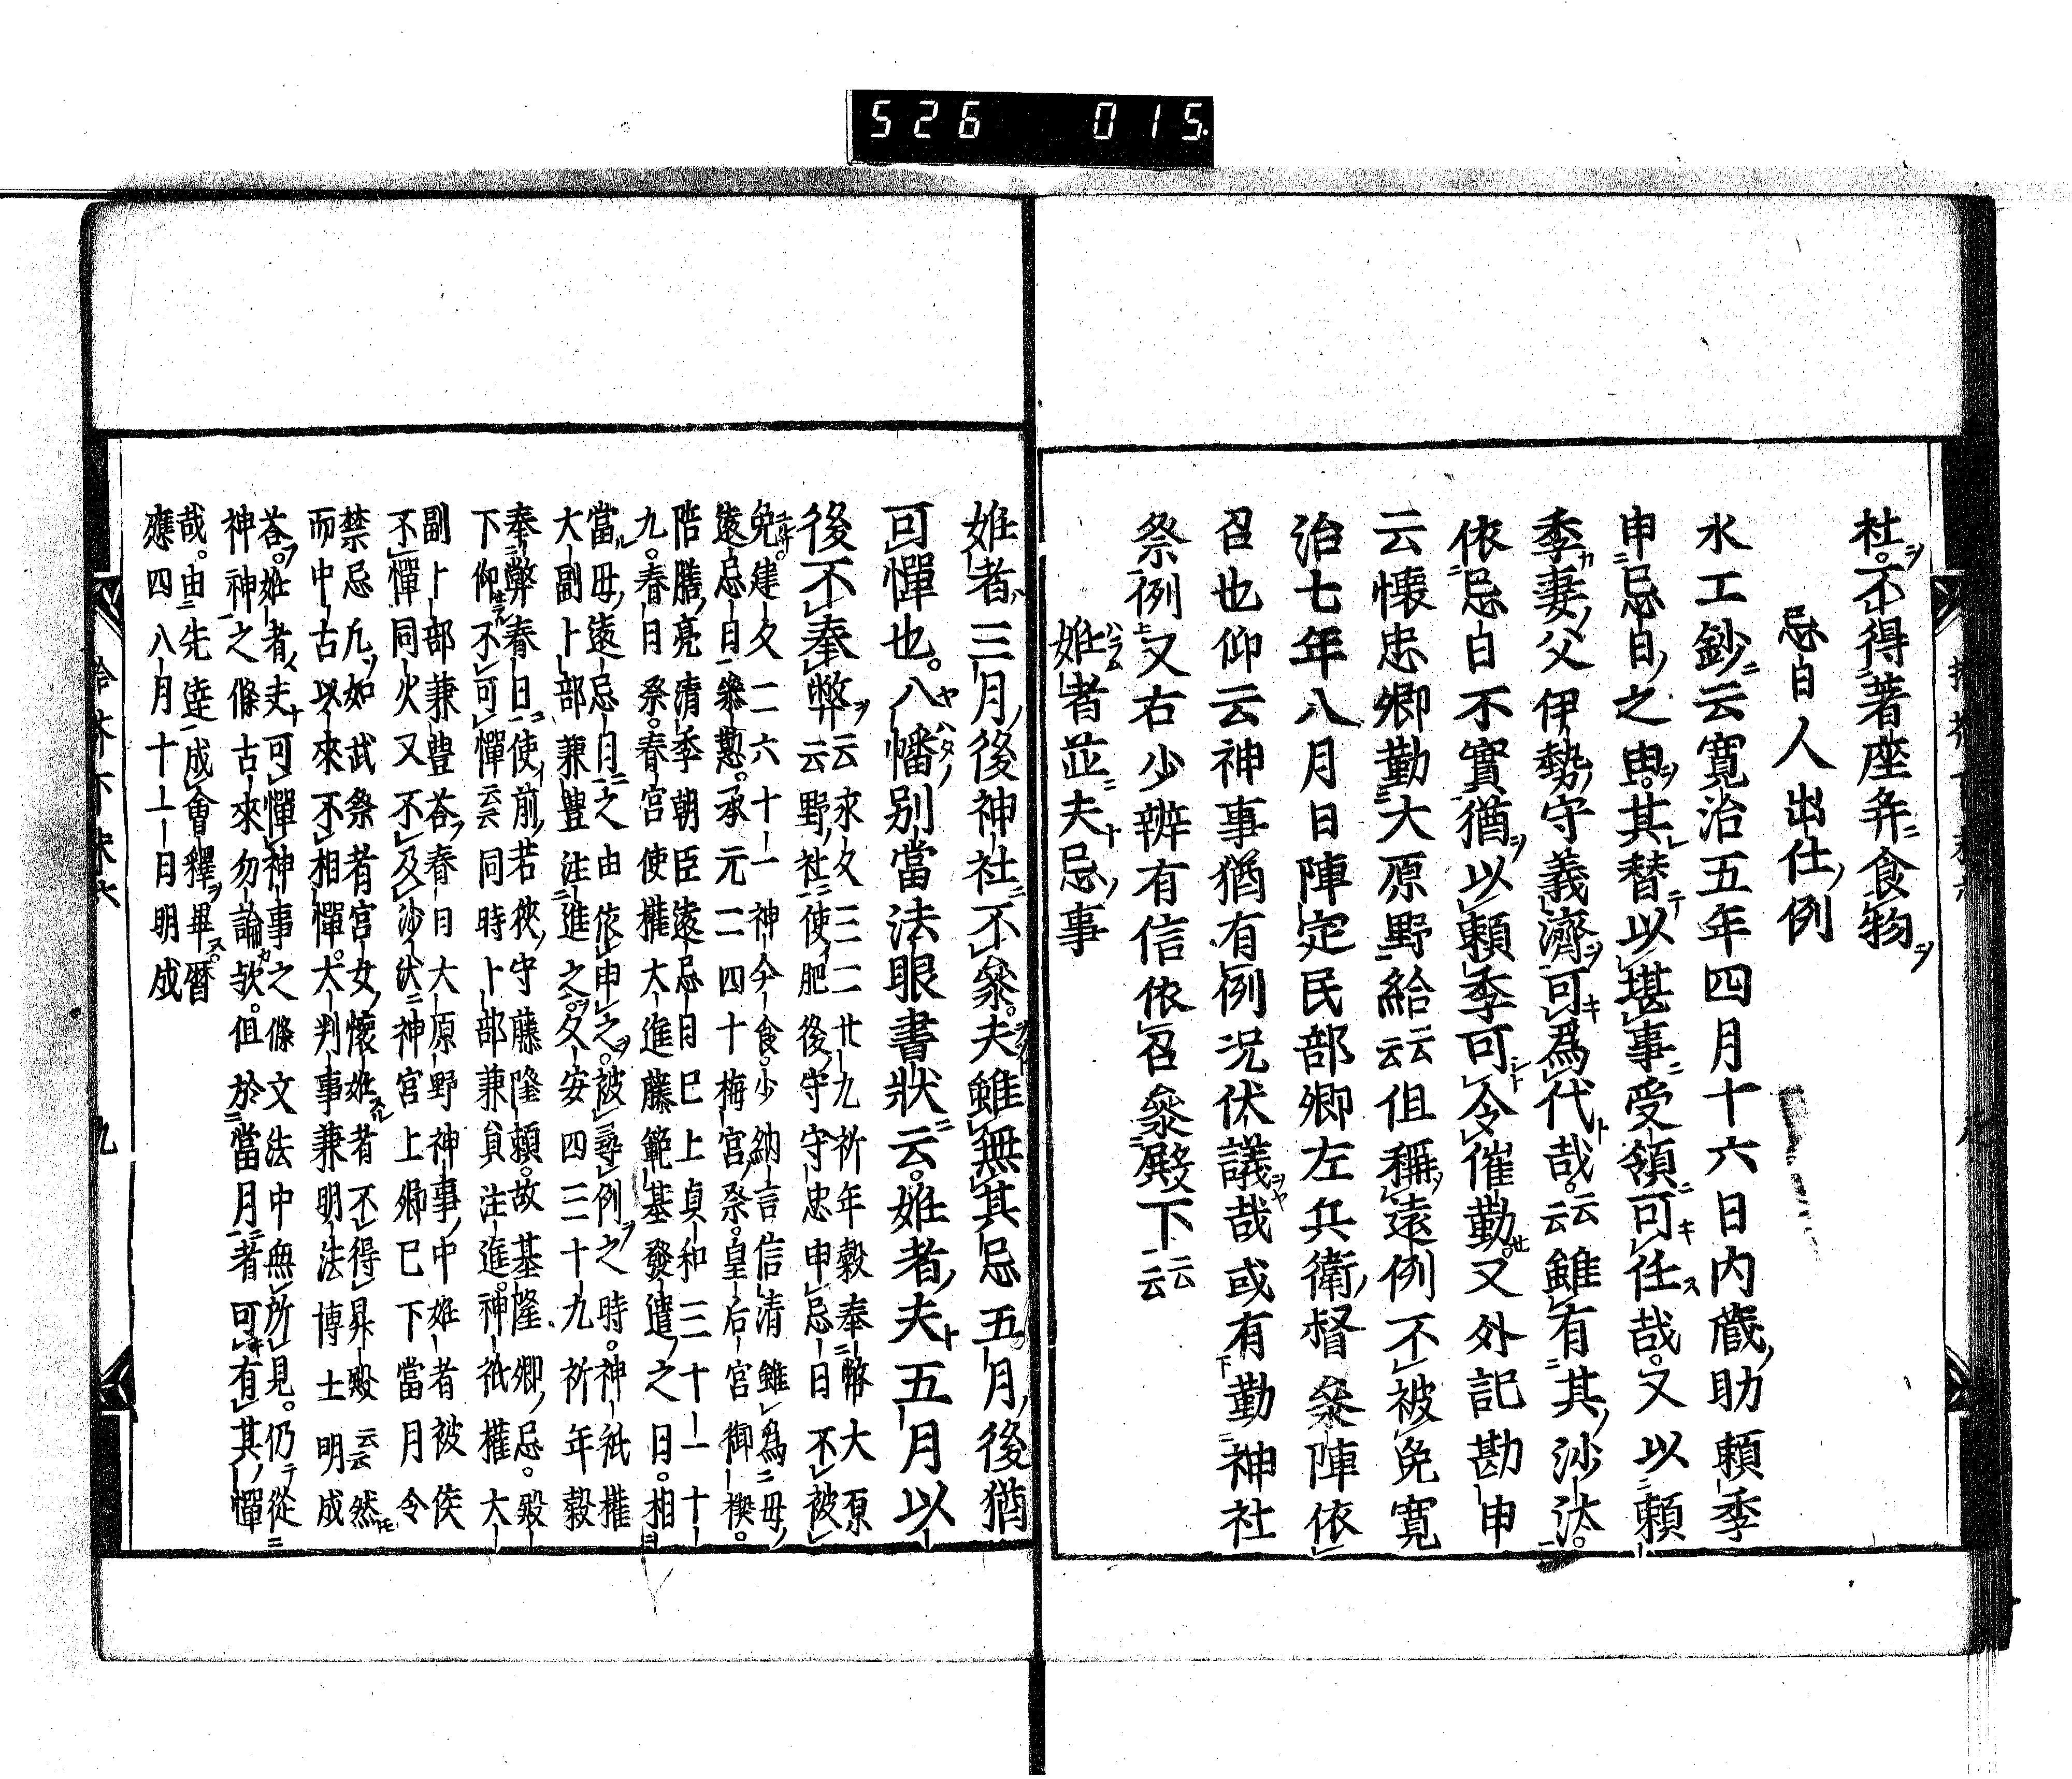 526 015
社。不得著座弁食物
忌日人出仕例
水工鈔云寛治五年四月十六日内蔵助頼季
申忌日之由。其替以堪事受領可任哉。又以頼
季妻父伊勢守義濟可為代哉。云云雖有其沙汰。
依忌日不實猶以頼季可令催勤。又外記勘申
云懐忠卿勤大原野給云云但稱遠例不被免寛
治七年八月日陣定民部卿左兵衛督参陣依
召也仰云神事猶有例况伏議哉或有勤神社
祭例又右少辨有信依召参殿下云云
姙者並夫忌事
姙者三月後神社不参。夫雖無其忌五月後猶
可憚也。八幡別當法眼書状云。姙者夫五月以
後不奉幣云永久三二廿九祈年穀奉幣大原
云野社使肥後守守忠申忌日不被
免。建久二六十一神今食。少納言信清雖為母
遠忌日参懃。承元二四十梅宮祭。皇后宮御禊。
陪膳亮清季朝臣遠忌日巳上貞和三十一十
九。春日祭。春宮使權大進藤範基發遣之日。相
當母遠忌月之由依申之。被尋例之時。神祇權
大副卜部兼豊注進之。久安四三十九祈年穀
奉幣春日使前若狹守藤隆頼。故基隆卿忌。殿
下仰不可憚云云同時卜部兼貞注進。神祇權大
副卜部兼豊荅春日大原野神事中姙者被候
不憚同火又不及沙汰神宮上卿巳下當月令
禁忌凡如武祭者宮女懐姙者不得昇殿云云然
而中古以來不相憚。大判事兼明法博士明成
荅。姙者夫可憚神事之條文法中無所見。仍從
神神之條古來勿論歟。但於當月者可有其憚
哉。由先達成會釋畢暦
應四八月十一日明成
九